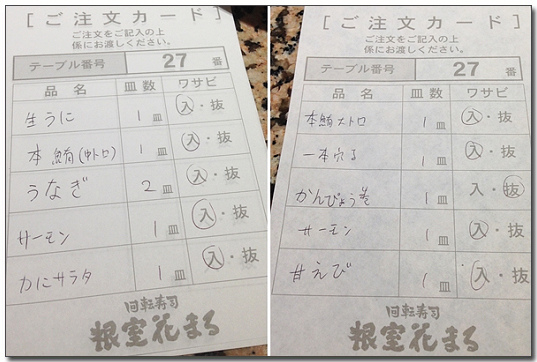 [ご注文カード]
ご注文をご記入の上
係にお渡しください。
テーブル番号 27 番
品名 皿数 ワサビ
生うに 1皿 入・抜
本鮪(中トロ) 1皿 入・抜
うなぎ 2皿 入・抜
サーモン 1皿 入・抜
カニサラタ 1皿 入・抜
回転寿司
根室花まる
[ご注文カード]
ご注文をご記入の上
係にお渡しください。
テーブル番号 27 番
品名 皿数 ワサビ
本鮪大トロ 1皿 入・抜
一本穴子 1皿 入・抜
かんぴょう巻 1皿 入・抜
サーモン 1皿 入・抜
甘えび 1皿 入・抜
回転寿司
根室花まる